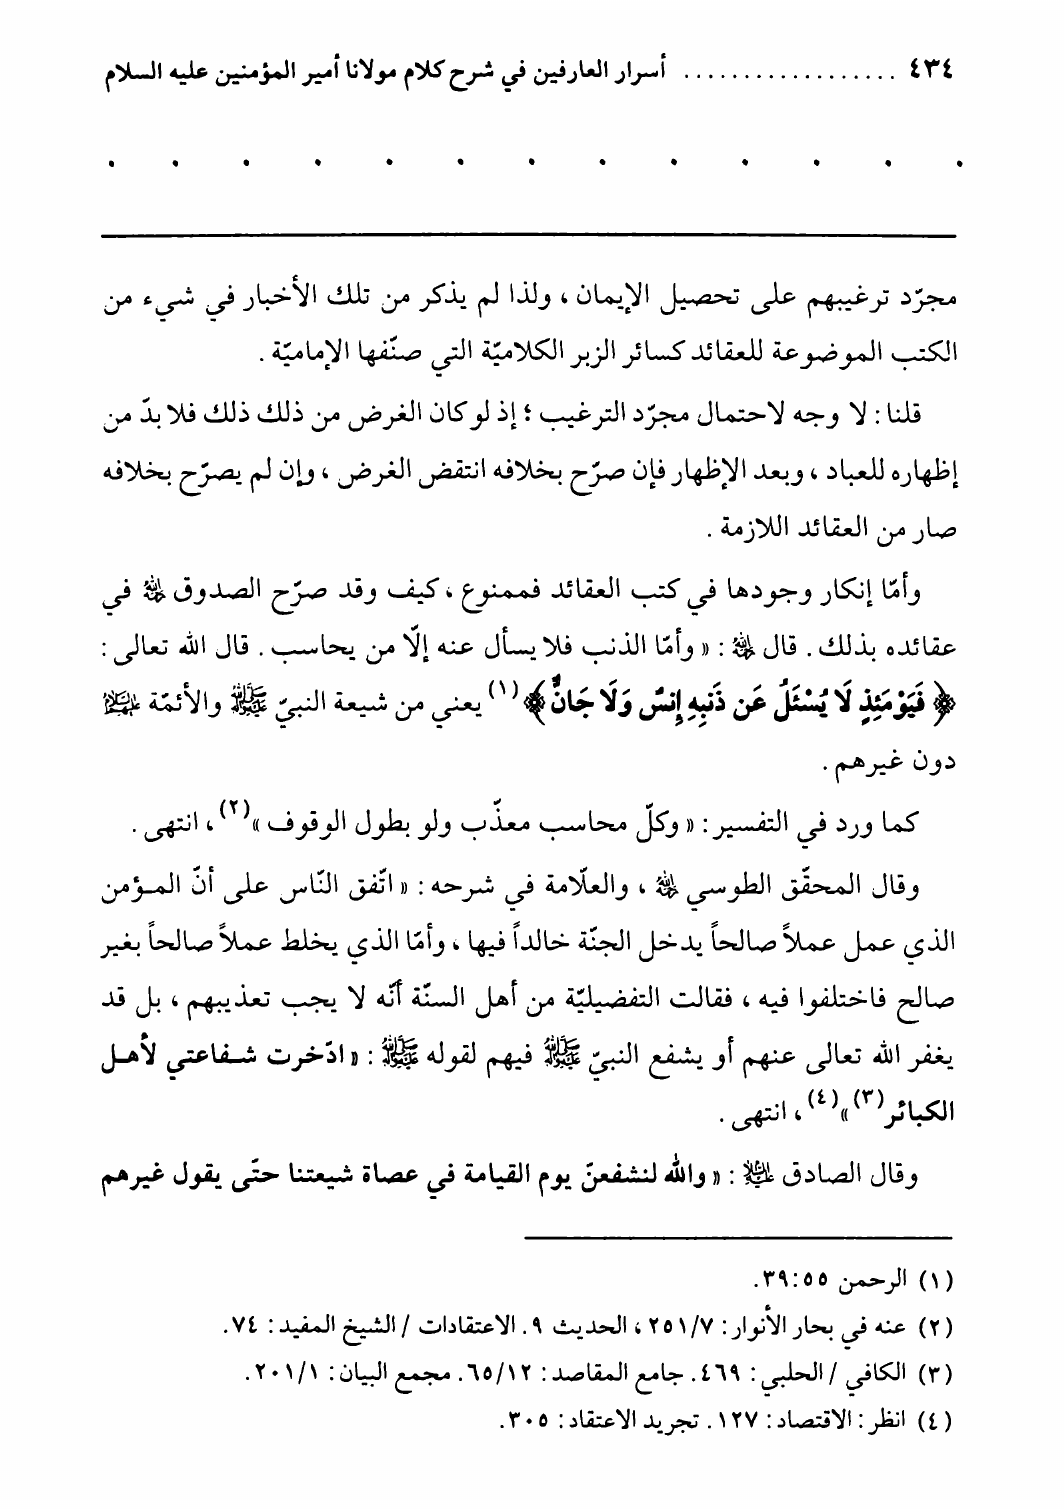 ٤٣٤ .................. أسرار العارفين في شرح كلام مولانا أمير المؤمنين عليه السلام
. . . . . . . . . . . . .
مجرّد ترغيبهم على تحصيل الإيمان ، ولذا لم يذكر من تلك الأخبار في شيء من
الكتب الموضوعة للعقائد كسائر الزبر الكلاميّة التي صنّفها الإماميّة .
قلنا : لا وجه لاحتمال مجرّد الترغيب ؛ إذ لو كان الغرض من ذلك ذلك فلا بدّ من
إظهاره للعباد ، وبعد الإظهار فإن صرّح بخلافه انتقض الغرض ، وإن لم يصرّح بخلافه
صار من العقائد اللازمة .
وأمّا إنكار وجودها في كتب العقائد فممنوع ، كيف وقد صرّح الصدوق ﷫ في
عقائده بذلك . قال ﷫ : « وأمّا الذنب فلا يسأل عنه إلّا من يحاسب . قال الله تعالى :
﴿ فَيَوْمَئِذٍ لَا يُسْئَلُ عَن ذَنبِهِ إِنسٌ وَلَا جَانٌّ ﴾(١) يعني من شيعة النبيّ ﷺ والأئمّة ﷨
دون غيرهم .
كما ورد في التفسير : « وكلّ محاسب معذّب ولو بطول الوقوف »(٢) ، انتهى .
وقال المحقّق الطوسي ﷫ ، والعلّامة في شرحه : « اتّفق النّاس على أنّ المـؤمن
الذي عمل عملاً صالحاً يدخل الجنّة خالداً فيها ، وأمّا الذي يخلط عملاً صالحاً بغير
صالح فاختلفوا فيه ، فقالت التفضيليّة من أهل السنّة أنّه لا يجب تعذيبهم ، بل قد
يغفر الله تعالى عنهم أو يشفع النبيّ ﷺ فيهم لقوله ﷺ : « ادّخرت شـفاعتي لأهـل
الكبائر(٣) »(٤) ، انتهى .
وقال الصادق ﷷ : « والله لنشفعنّ يوم القيامة في عصاة شيعتنا حتّى يقول غيرهم
(١) الرحمن ٥٥:٣٩.
(٢) عنه في بحار الأنوار : ٢٥١/٧ ، الحديث ٩. الاعتقادات / الشيخ المفيد : ٧٤.
(٣) الكافي / الحلبي : ٤٦٩. جامع المقاصد : ٦٥/١٢. مجمع البيان : ٢٠١/١.
(٤) انظر : الاقتصاد : ١٢٧. تجريد الاعتقاد : ٣٠٥.